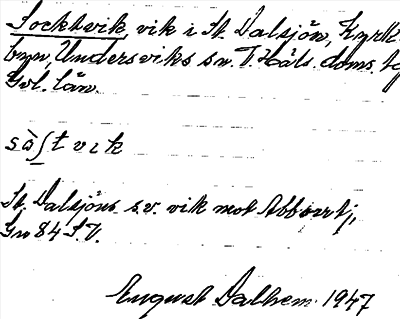 Socktvik, vik i St. Dalsjön, Kyrk
byn, Undersviks sn. V. Häls. doms. 
Gvl. län.
såʃtvik
St. Dalsjöns s.v. vik mot Abborrtj,
Gv 84 S.V.
August Dalhem. 1947